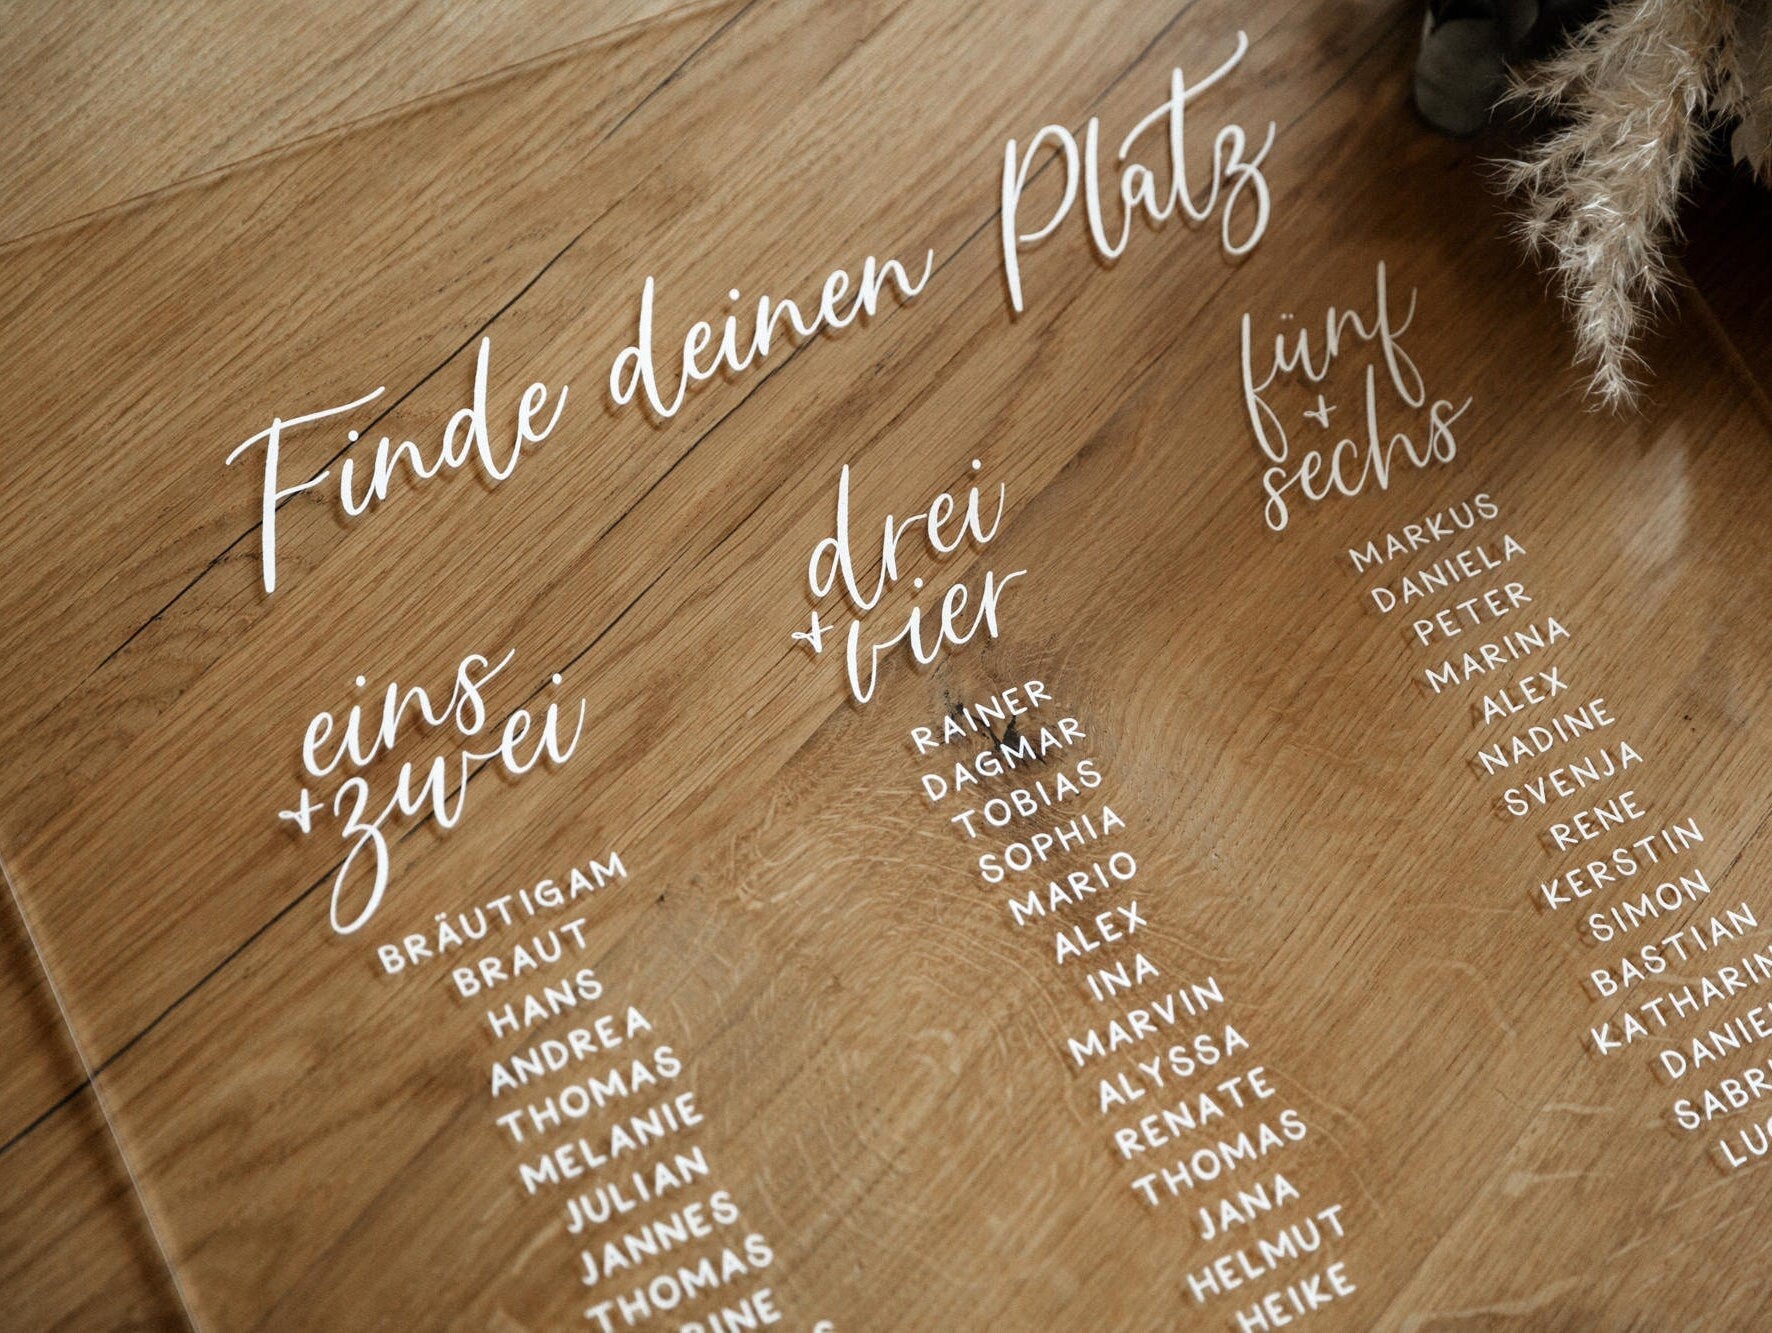 Finde deinen Platz
eins
+ zwei
BRÄUTIGAM
BRAUT
HANS
ANDREA
THOMAS
MELANIE
JULIAN
JANNES
THOMAS
drei
+ vier
RAINER
DAGMAR
TOBIAS
SOPHIA
MARIO
ALEX
INA
MARVIN
ALYSSA
RENATE
THOMAS
JANA
HELMUT
HEIKE
fünf
+
sechs
MARKUS
DANIELA
PETER
MARINA
ALEX
NADINE
SVENJA
RENE
KERSTIN
SIMON
BASTIAN